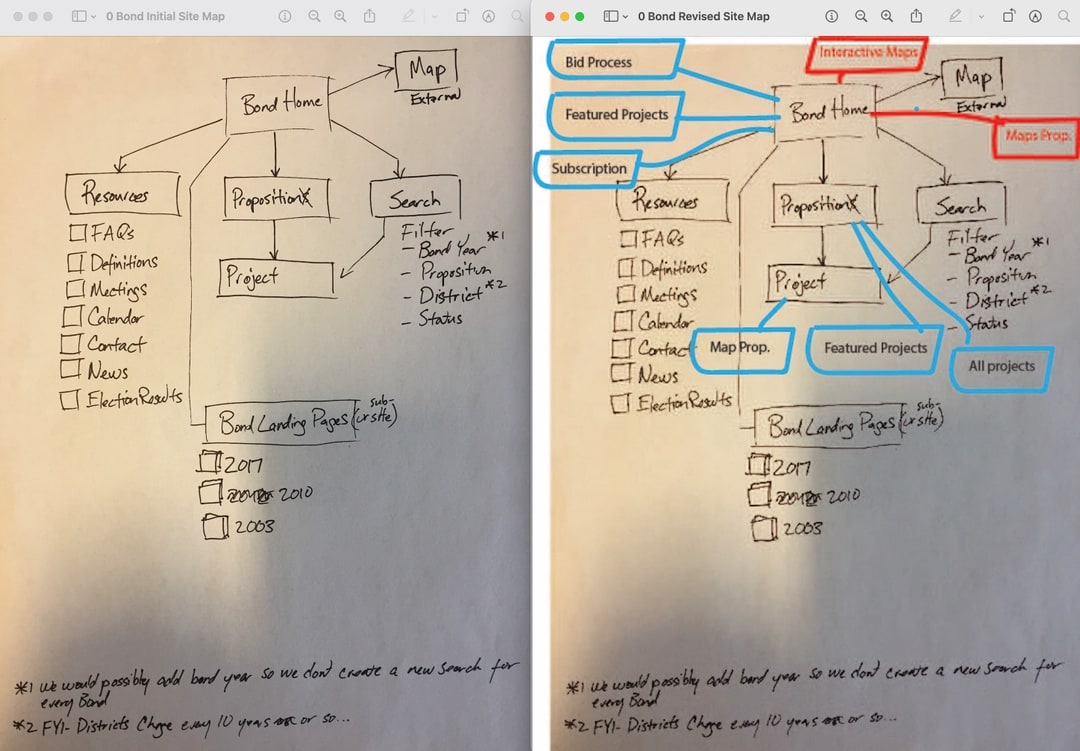 0 Bond Initial Site Map
Bond Home
Map
External
Resources
FAQs
Definitions
Meetings
Calendar
Contact
News
Election Results
Proposition
Project
Search
Filter
- Bond Year *1
- Proposition
- District *2
- Status
Bond Landing Pages (or sub-site)
2017
2010
2003
*1 We would possibly add bond year so we don't create a new search for
every Bond
*2 FYI- Districts Change every 10 years or so...
0 Bond Revised Site Map
Interactive Maps
Bid Process
Featured Projects
Subscription
Bond Home
Map
External
Maps Prop.
Resources
FAQs
Definitions
Meetings
Calendar
Contact
News
Election Results
Proposition
Project
Search
Filter
- Bond Year *1
- Proposition
- District *2
- Status
Map Prop.
Featured Projects
All projects
Bond Landing Pages (or sub-site)
2017
2010
2003
*1 We would possibly add bond year so we don't create a new search for
every Bond
*2 FYI- Districts Change every 10 years or so...